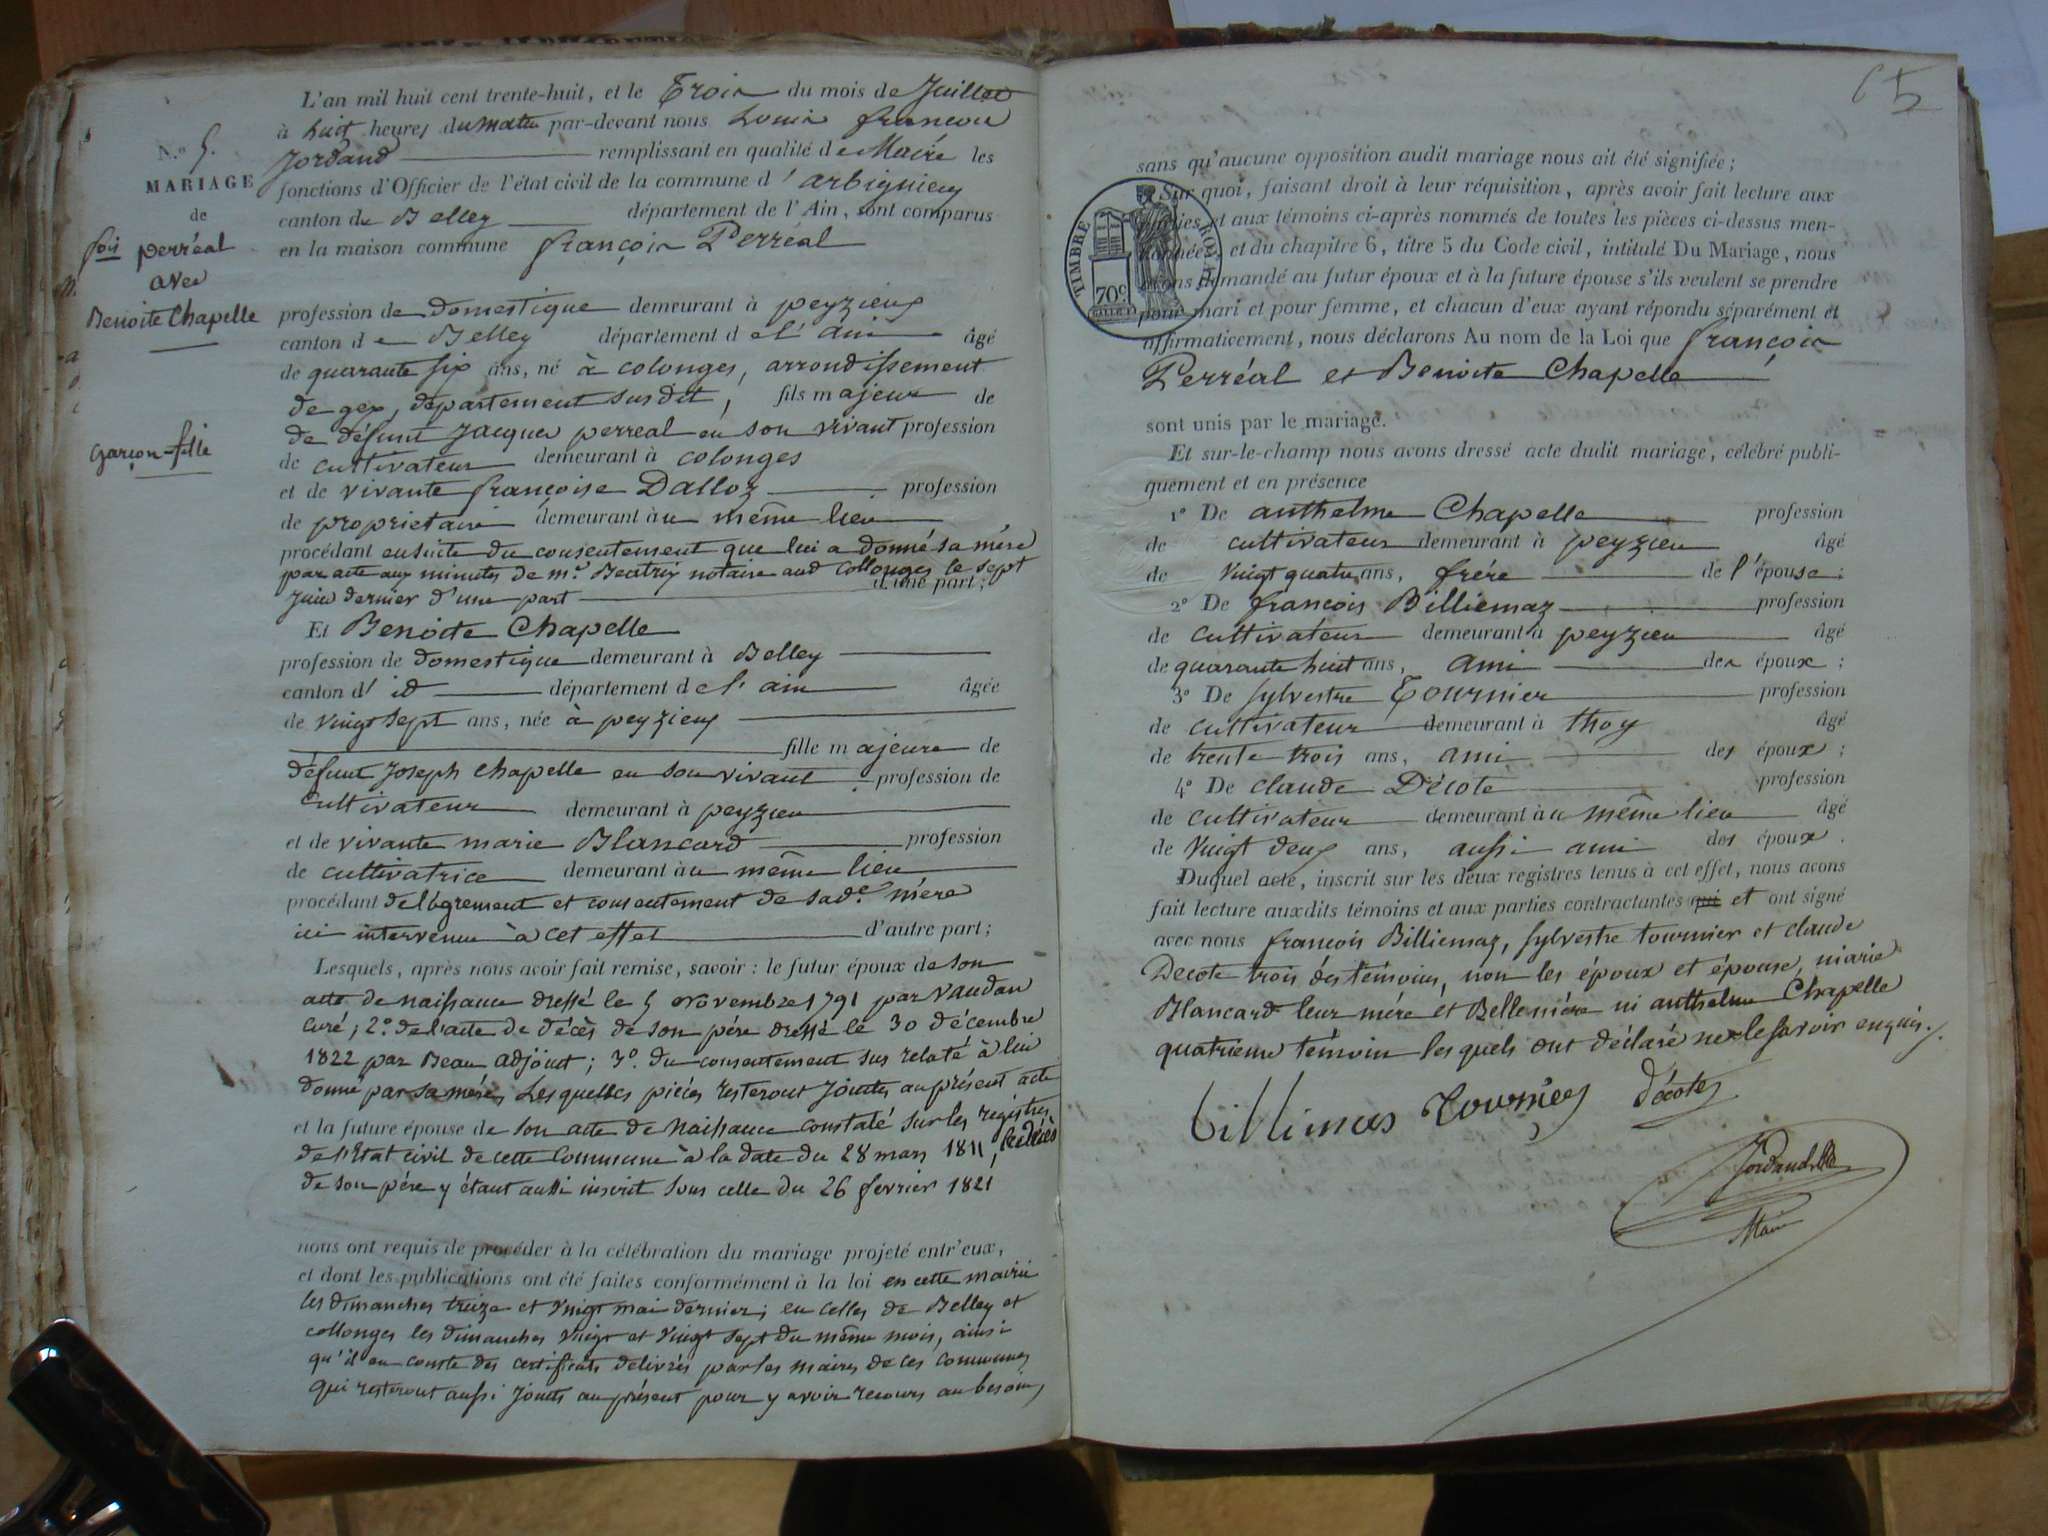 L'an mil huit cent trente-huit, et le Trois du mois de Juillet
à huit heures du matin par-devant nous Louis françois
Jordand remplissant en qualité de Maire les
fonctions d'Officier de l'état civil de la commune d'arbignieu
canton de Belley département de l'Ain, sont comparus
en la maison commune françois Perréal
N.º 5.
MARIAGE
de
fois perréal
avec
Benoite Chapelle
garçon-fille
profession de domestique demeurant à peyzieux
canton de Belley département de l'ain âgé
de quarante six ans, né à colonges, arrondissement
de gex, département susdit, fils majeur de
de défunt Jacques perreal en son vivant profession
de cultivateur demeurant à colonges
et de vivante françoise Dalloz profession
de proprietaire demeurant au même lieu
procédant ensuite du consentement que lui a donné sa mère
par acte aux minutes de mr. Beatrix notaire aud collonges le sept
d'une part;
Juin dernier d'une part
Et Benoite Chapelle
profession de domestique demeurant à Belley
canton d'id département de l'ain âgée
de vingt sept ans, née à peyzieux
fille majeure de
défunt Joseph Chapelle en son vivant profession de
cultivateur demeurant à peyzieu
et de vivante marie Blancard profession
de cultivatrice demeurant au même lieu
procédant de l'agrement et consentement de sade. mère
ici intervenue à cet effet d'autre part;
Lesquels, après nous avoir fait remise, savoir : le futur époux de son
acte de naissance dressé le 5 novembre 1791 par vaudan
curé; 2º. de l'acte de décès de son père dressé le 30 décembre
1822 par Beau adjoint; 3º. du consentement sus relaté à lui
donné par sa mère, Lesquelles pièces resteront jointes au présent acte
et la future épouse de son acte de naissance constaté sur les registres
de l'Etat civil de cette commune à la date du 28 mars 1811, le décès
de son père y étant aussi inscrit sous celle du 26 fevrier 1821
nous ont requis de procéder à la célébration du mariage projeté entr'eux,
et dont les publications ont été faites conformément à la loi en cette mairie
les dimanches treize et vingt mai dernier; en celles de Belley et
collonges les dimanches vingt et vingt sept du même mois, ainsi
qu'il en conste des certificats delivrés par les maires de ces communes
qui resteront aussi joints au présent pour y avoir recours au besoin,
65
sans qu'aucune opposition audit mariage nous ait été signifiée;
Sur quoi, faisant droit à leur réquisition, après avoir fait lecture aux
parties et aux témoins ci-après nommés de toutes les pièces ci-dessus men-
tionnées, et du chapitre 6, titre 5 du Code civil, intitulé Du Mariage, nous
avons demandé au futur époux et à la future épouse s'ils veulent se prendre
pour mari et pour femme, et chacun d'eux ayant répondu séparément et
affirmativement, nous déclarons Au nom de la Loi que françois
TIMBRE ROYAL
70c
Perréal et Benoite Chapelle
sont unis par le mariage.
Et sur-le-champ nous avons dressé acte dudit mariage, célébré publi-
quement et en présence
1º De anthelme Chapelle profession
de cultivateur demeurant à peyzieu âgé
de vingt quatre ans, frére de l'épouse;
2º De françois Billiemaz profession
de cultivateur demeurant à peyzieu âgé
de quarante huit ans, ami des époux;
3º De sylvestre Tournier profession
de cultivateur demeurant à thoy âgé
de trente trois ans, ami des époux;
4º De claude Décote profession
de cultivateur demeurant au même lieu âgé
de vingt deux ans, aussi ami des époux.
Duquel acte, inscrit sur les deux registres tenus à cet effet, nous avons
fait lecture auxdits témoins et aux parties contractantes qui et ont signé
avec nous françois Billiemaz, sylvestre tournier et claude
Decote trois des témoins, non les époux et épouse, marie
Blancard leur mère et Bellemère ni anthelme Chapelle
quatrieme témoin lesquels ont déclaré ne le savoir enquis.
billimas Tournier Décote
Maire